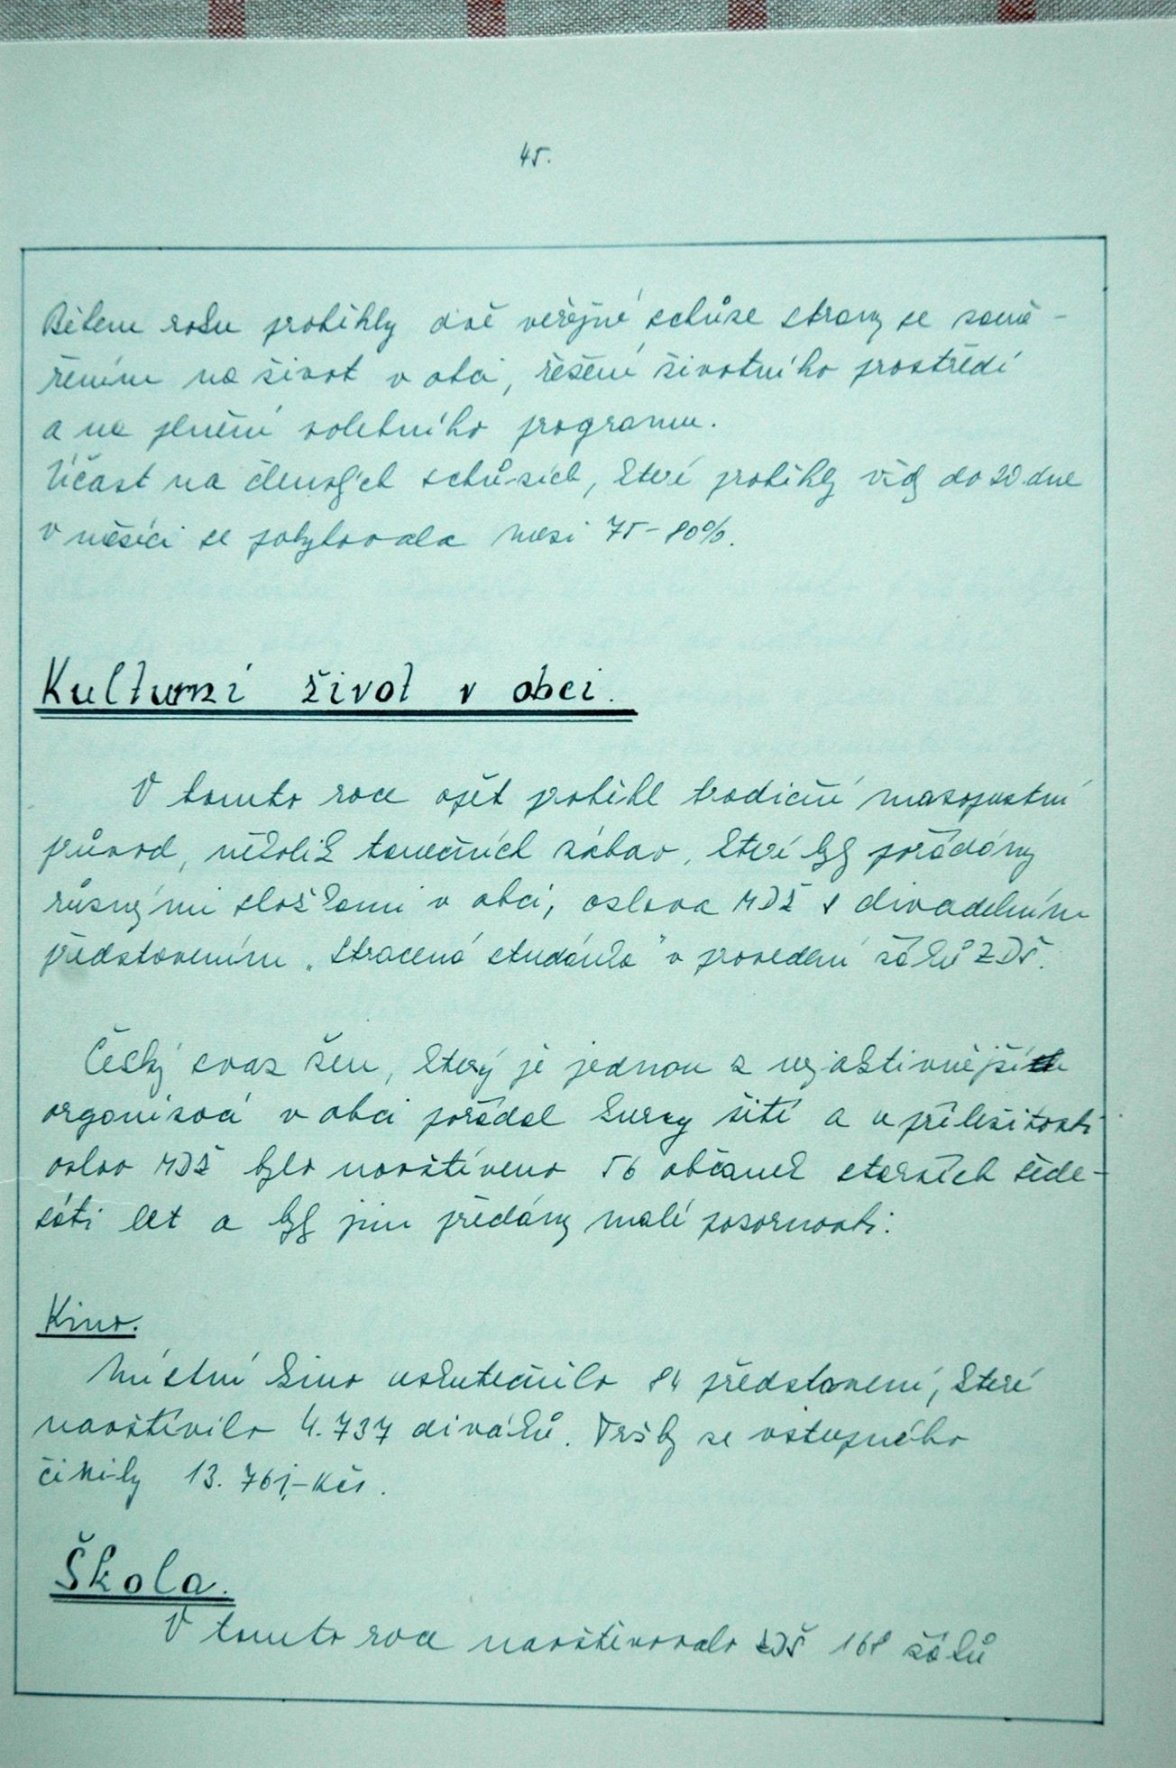 45.
Během roku proběhly dvě veřejné schůze strany se zamě-
řením na život v obci, řešení životního prostředí
a na plnění volebního programu.
Účast na členských schůzích, které proběhly vždy do 20. dne
v měsíci se pohybovala mezi 75-80%.
Kulturní život v obci.
V tomto roce opět proběhl tradiční masopustní
průvod, několik tanečních zábav, které byly pořádány
různými složkami v obci, oslava MDŽ s divadelním
představením „Ztracená studánka" v provedení žáků ZDŠ.
Český svaz žen, který je jednou z nejaktivnější
organizací v obci pořádal kurzy šití a u příležitosti
oslav MDŽ bylo navštíveno 56 občanek starších šede-
sáti let a byly jim předány malé pozornosti.
Kino.
Místní kino uskutečnilo 84 představení, které
navštívilo 4.737 diváků. Tržby ze vstupného
činily 13.761,- Kčs.
Škola.
V tomto roce navštěvovalo ZDŠ 168 žáků